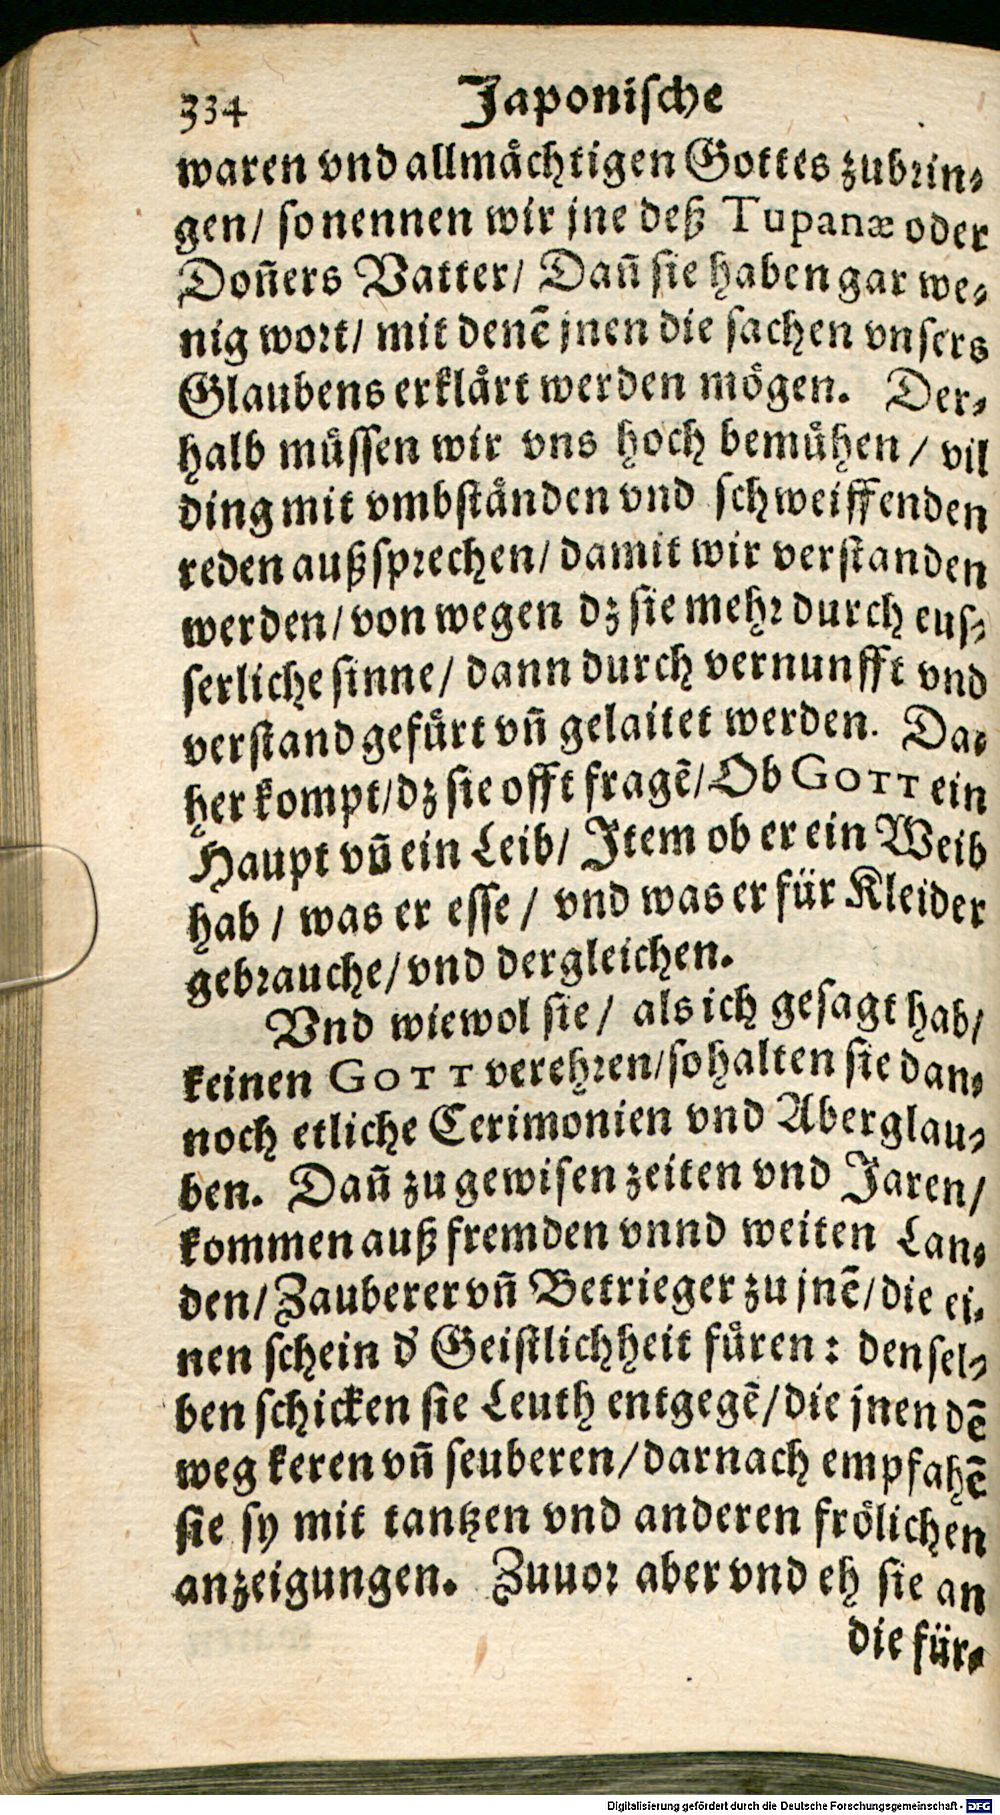 334 Japonische
waren vnd allmaͤchtigen Gottes zubrin⸗
gen/ so nennen wir jne deß Tupanæ oder
Don̄ers Vatter/ Dan̄ sie haben gar we⸗
nig wort/ mit denē jnen die sachen vnsers
Glaubens erklaͤrt werden moͤgen. Der⸗
halb muͤssen wir vns hoch bemuͤhen / vil
ding mit vmbstaͤnden vnd schweiffenden
reden außsprechen/ damit wir verstanden
werden/ von wegen dz sie mehr durch eus⸗
serliche sinne/ dann durch vernunfft vnd
verstand gefuͤrt vn̄ gelaitet werden. Da⸗
her kompt/ dz sie offt fragē/ Ob GOTT ein
Haupt vn̄ ein Leib/ Item ob er ein Weib
hab / was er esse / vnd was er für Kleider
gebrauche/ vnd dergleichen.
Vnd wiewol sie/ als ich gesagt hab/
keinen GOTT verehren/ so halten sie dan⸗
noch etliche Cerimonien vnd Aberglau⸗
ben. Dan̄ zu gewisen zeiten vnd Jaren/
kommen auß fremden vnnd weiten Lan⸗
den/ Zauberer vn̄ Betrieger zu jnē/ die ei⸗
nen schein d' Geistlichheit fuͤren: densel⸗
ben schicken sie Leuth entgegē/ die jnen dē
weg keren vn̄ seuberen/ darnach empfahē
sie sy mit tantzen vnd anderen froͤlichen
anzeigungen. Zuuor aber vnd eh sie an
die für⸗
Digitalisierung gefördert durch die Deutsche Forschungsgemeinschaft - DFG